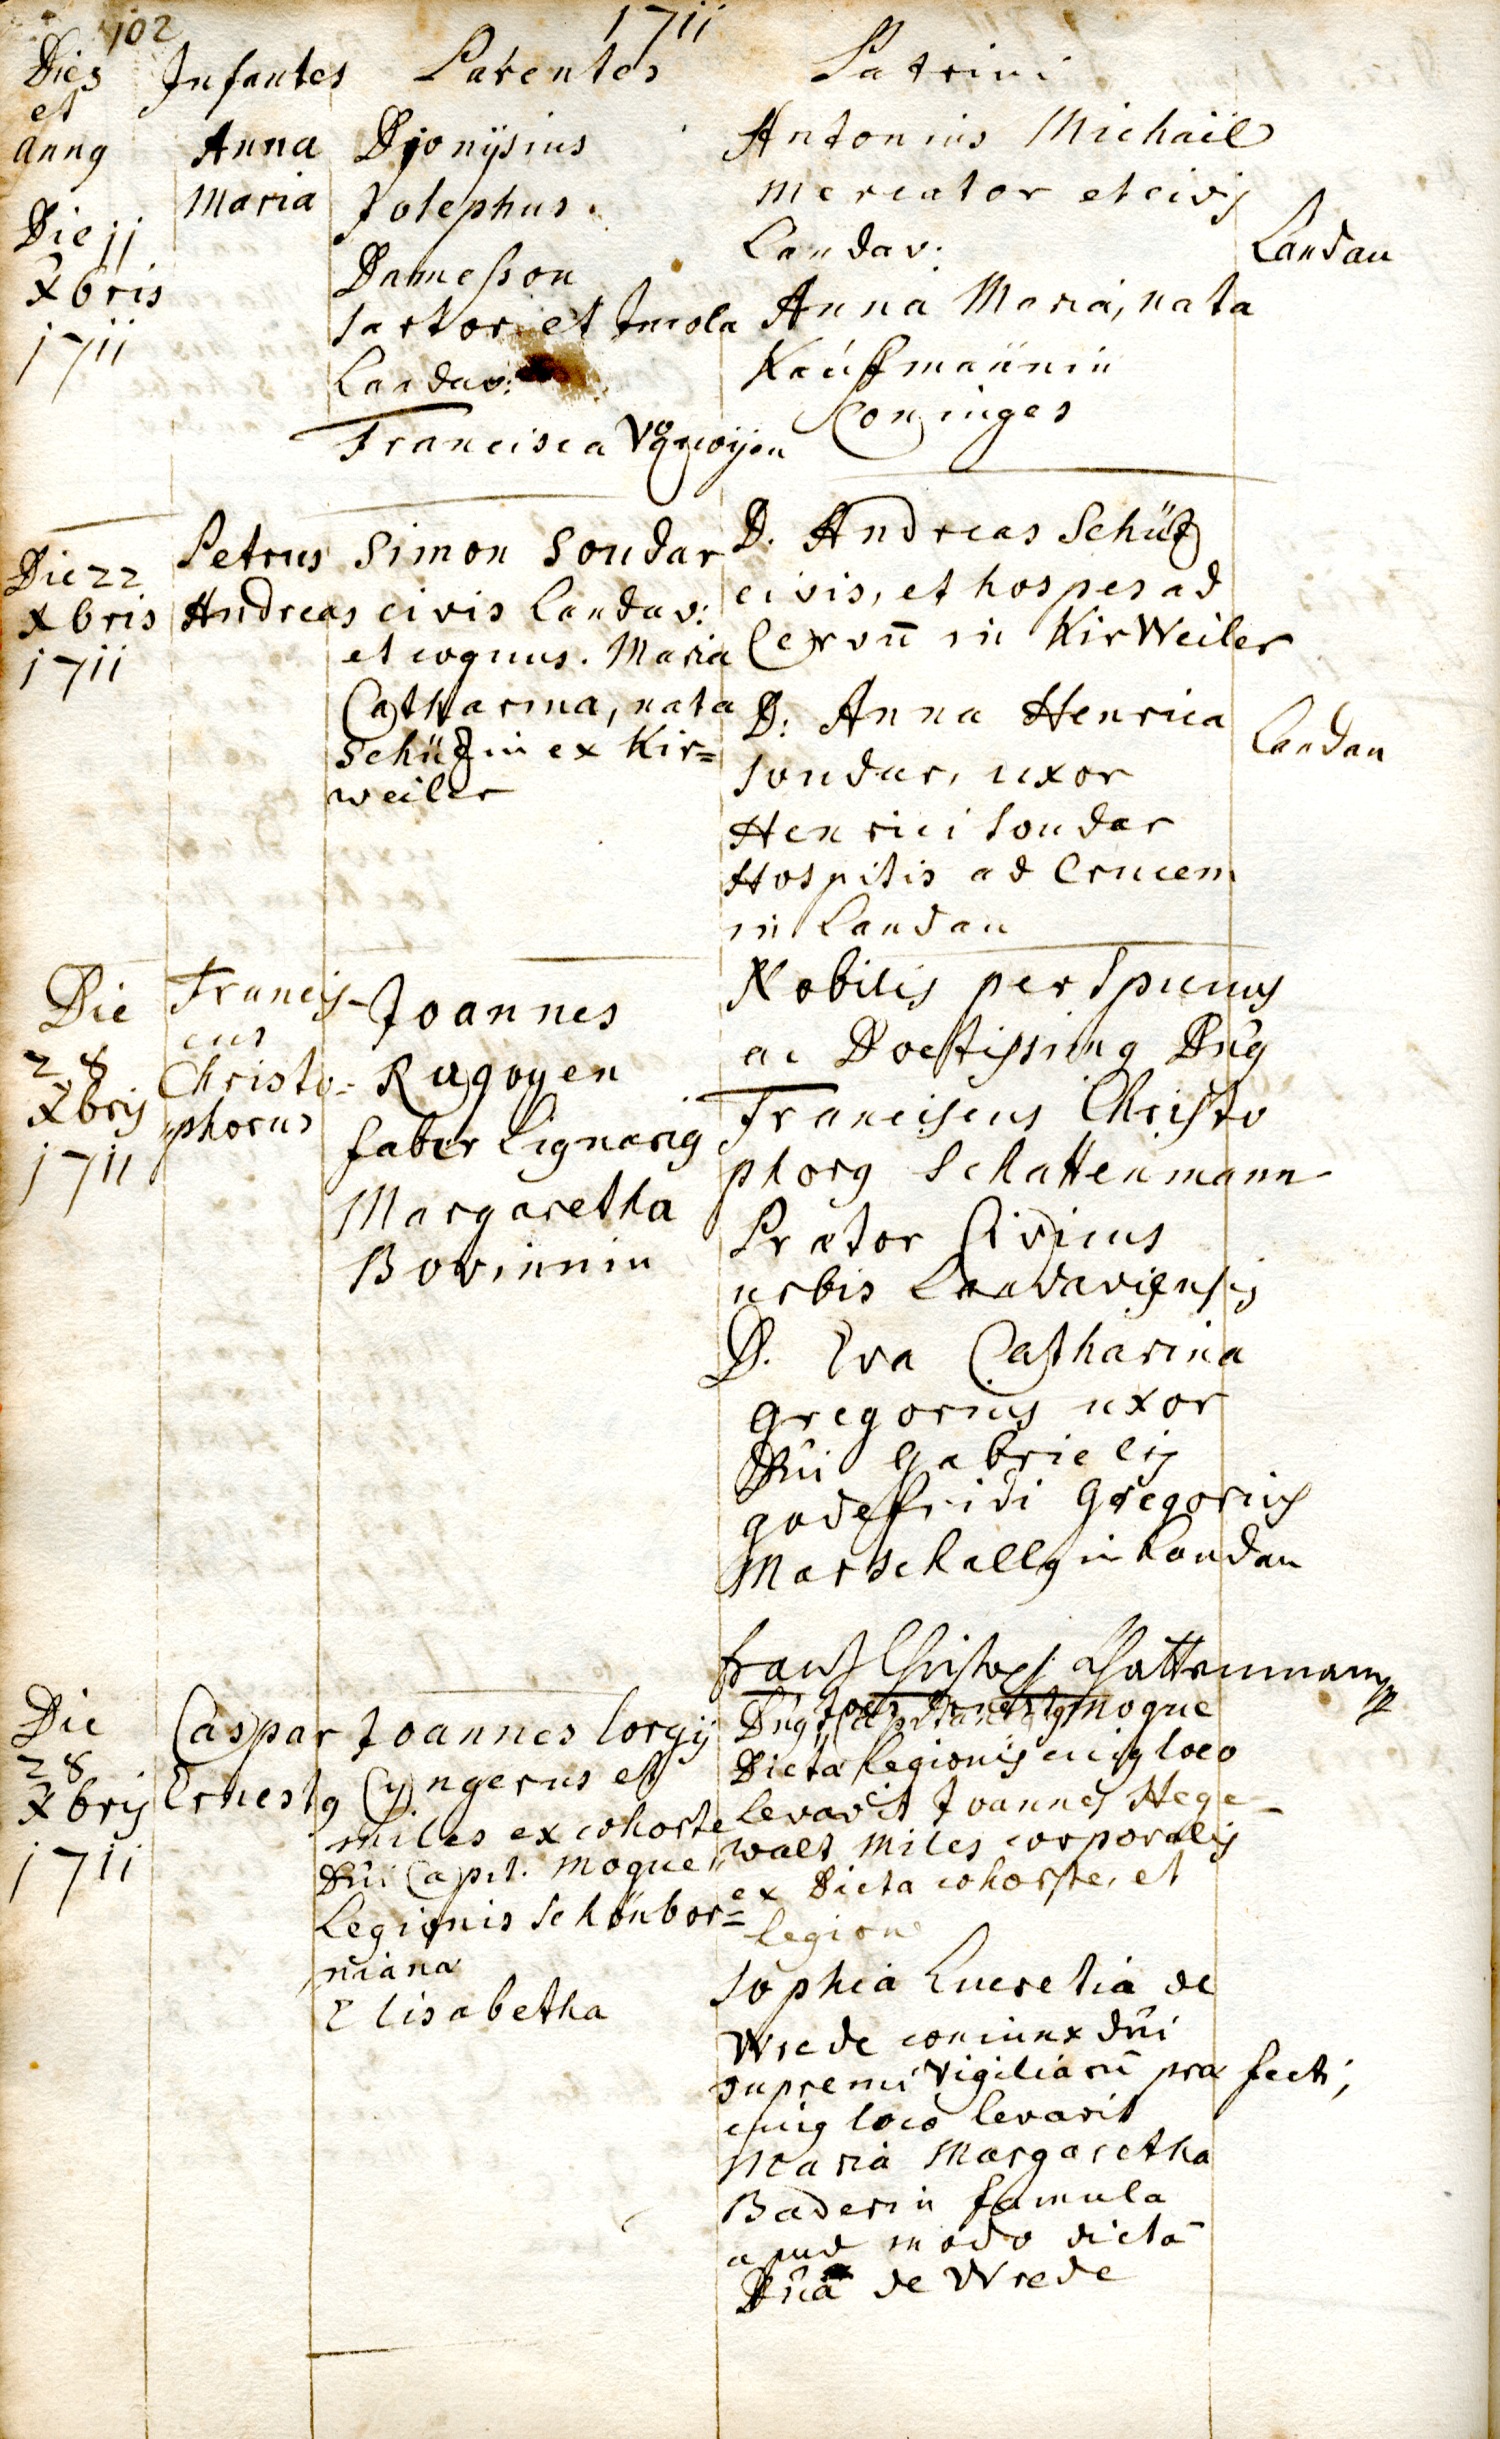 102
1711
Dies
et
annq
Infantes
Parentes
Patrini
Die 11
Xbris
1711
Anna
Maria
Dyonysius
Josephus.
Damesson
sartor et Incola
Landav:
Francisca
Antonius Michaël
Mercator et civis
Landav:
Anna Maria, nata
Kauffmännin
Conjuges
Landau
Die 22
Xbris
1711
Petrus
Andreas
Simon Soudar
civis Landav:
et coquus. Maria
Catharina, nata
Schützin ex Kir=
weiler
D. Andreas Schütz
civis, et hospes ad
Cervū in KirWeiler
D. Anna Henrica
soudar, uxor
Henrici soudar
Hospitis ad Crucem
in Landau
Landau
Die
28
Xbris
1711
Francis-
cus
Christo=
phorus
Joannes
Ragoyen
faber Lignariq
Margaretha
Bovinnin
Nobilis perspicuus
ac Doctissimq Dn̄q
Franciscus Christo
phorq Schattenmann
Prætor Civicus
urbis Landaviensis
D. Eva Catharina
Gregorius uxor
Dn̄i Gabrielis
godefridi Gregorius
Marschallq in Landau
Frantz Christoph Schattenmann
Die
28
Xbris
1711
Caspar
Ernestq
Joannes Georgij
Cyngerus et
miles ex cohorte
Dn̄i Capit. Moque
Legionis Schönbor=
niana
Elisabetha
Dn̄q Capitaneq Moque
Dicta Legionis cuiq loco
levavit Joannes Hege-
walt miles corporalis
ex Dicta cohorte, et
legione
Sophia Lucretia de
Wrede coniunx Dn̄i
supremi vigiliarū præfecti,
cuiq loco levavit
Maria Margaretha
Baderin famula
apud modo dictā
Dn̄ā de Wrede